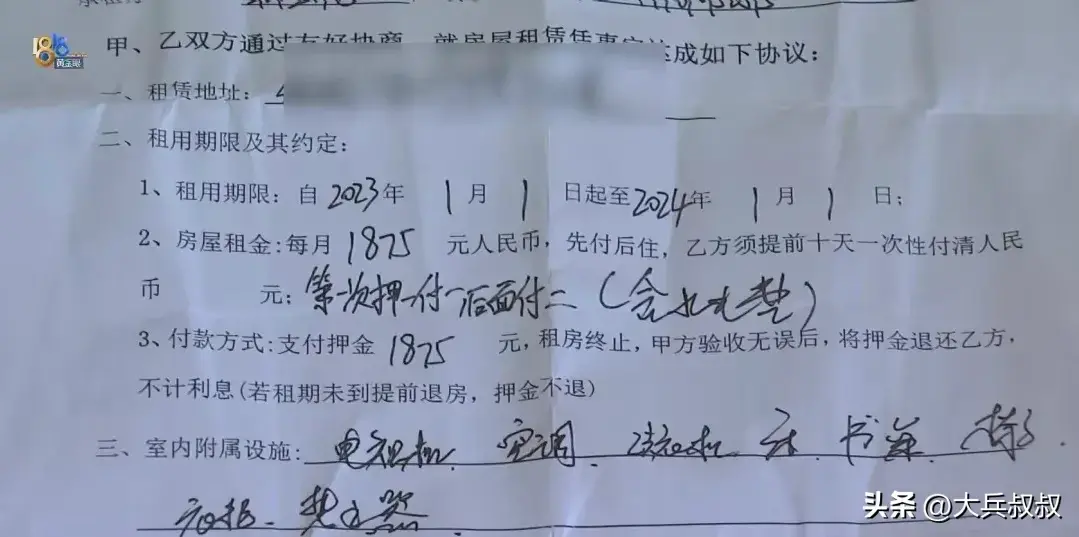 1818
黄金眼
甲、乙双方通过友好协商,就房屋租赁事宜达成如下协议:
一、租赁地址:
二、租用期限及其约定:
1、租用期限:自2023年 1月 1 日起至2024年 1月 1 日;
2、房屋租金:每月1875 元人民币,先付后住,乙方须提前十天一次性付清人民
币 元;第一次押一付一后面付二(含
3、付款方式:支付押金1875 元,租房终止,甲方验收无误后,将押金退还乙方,
不计利息(若租期未到提前退房,押金不退)
三、室内附属设施:电视机、空调、洗衣机、床、书桌、椅子.
热水器
头条 @大兵叔叔